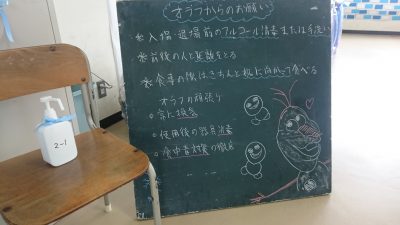 オラフからのお願い
※入場・退場前のアルコール消毒または手洗い
※前後の人と距離をとる
※食事の際はきちんと机に向かって食べる
オラフの頑張り
○常に換気
○使用後の器具消毒
○食中毒対策の徹底
2-1